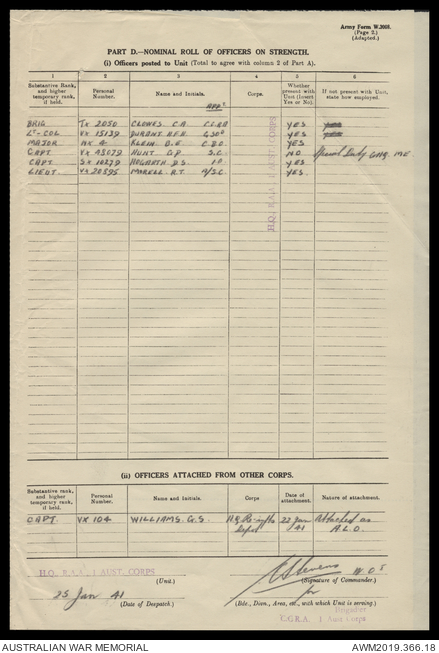 Army Form W.3008.
(Page 2.)
(Adapted.)
PART D.—NOMINAL ROLL OF OFFICERS ON STRENGTH.
(i) Officers posted to Unit (Total to agree with column 2 of Part A).
1 2 3 4 5 6
Substantive Rank, and higher temporary rank, if held. Personal Number. Name and Initials. Corps. Whether present with Unit (Insert Yes or No). If not present with Unit, state how employed.
APPT
BRIG TX 2050 CLOWES. C.A. C.C.R.A YES
LT-COL VX 15139 DURANT. H.F.H. YES
MAJOR NX 4 KLEIN. B.E. YES
CAPT. VX 43079 HUNT. G.P. S.C. NO Special Duty. GHQ. ME
CAPT. SX 10279 HOGARTH. D.S. I.O YES
LIEUT. VX 20595 A.T. A/S.C. YES.
H.Q. R.A.A. 1 AUST. CORPS
(ii) OFFICERS ATTACHED FROM OTHER CORPS.
Substantive rank, and higher temporary rank, if held. Personal Number. Name and Initials. Corps Date of attachment. Nature of attachment.
CAPT. VX 104 WILLIAMS. G.S. 22 Jan 41 Attached as A.L.O.
H.Q. R.A.A. 1 AUST. CORPS
(Unit.)
Stevens
(Signature of Commander.)
25 Jan 41
(Date of Despatch.)
for
(Bde., Divn., Area, etc., with which Unit is serving.)
Brigadier
C.C.R.A. 1 Aust Corps
AUSTRALIAN WAR MEMORIAL AWM2019.366.18